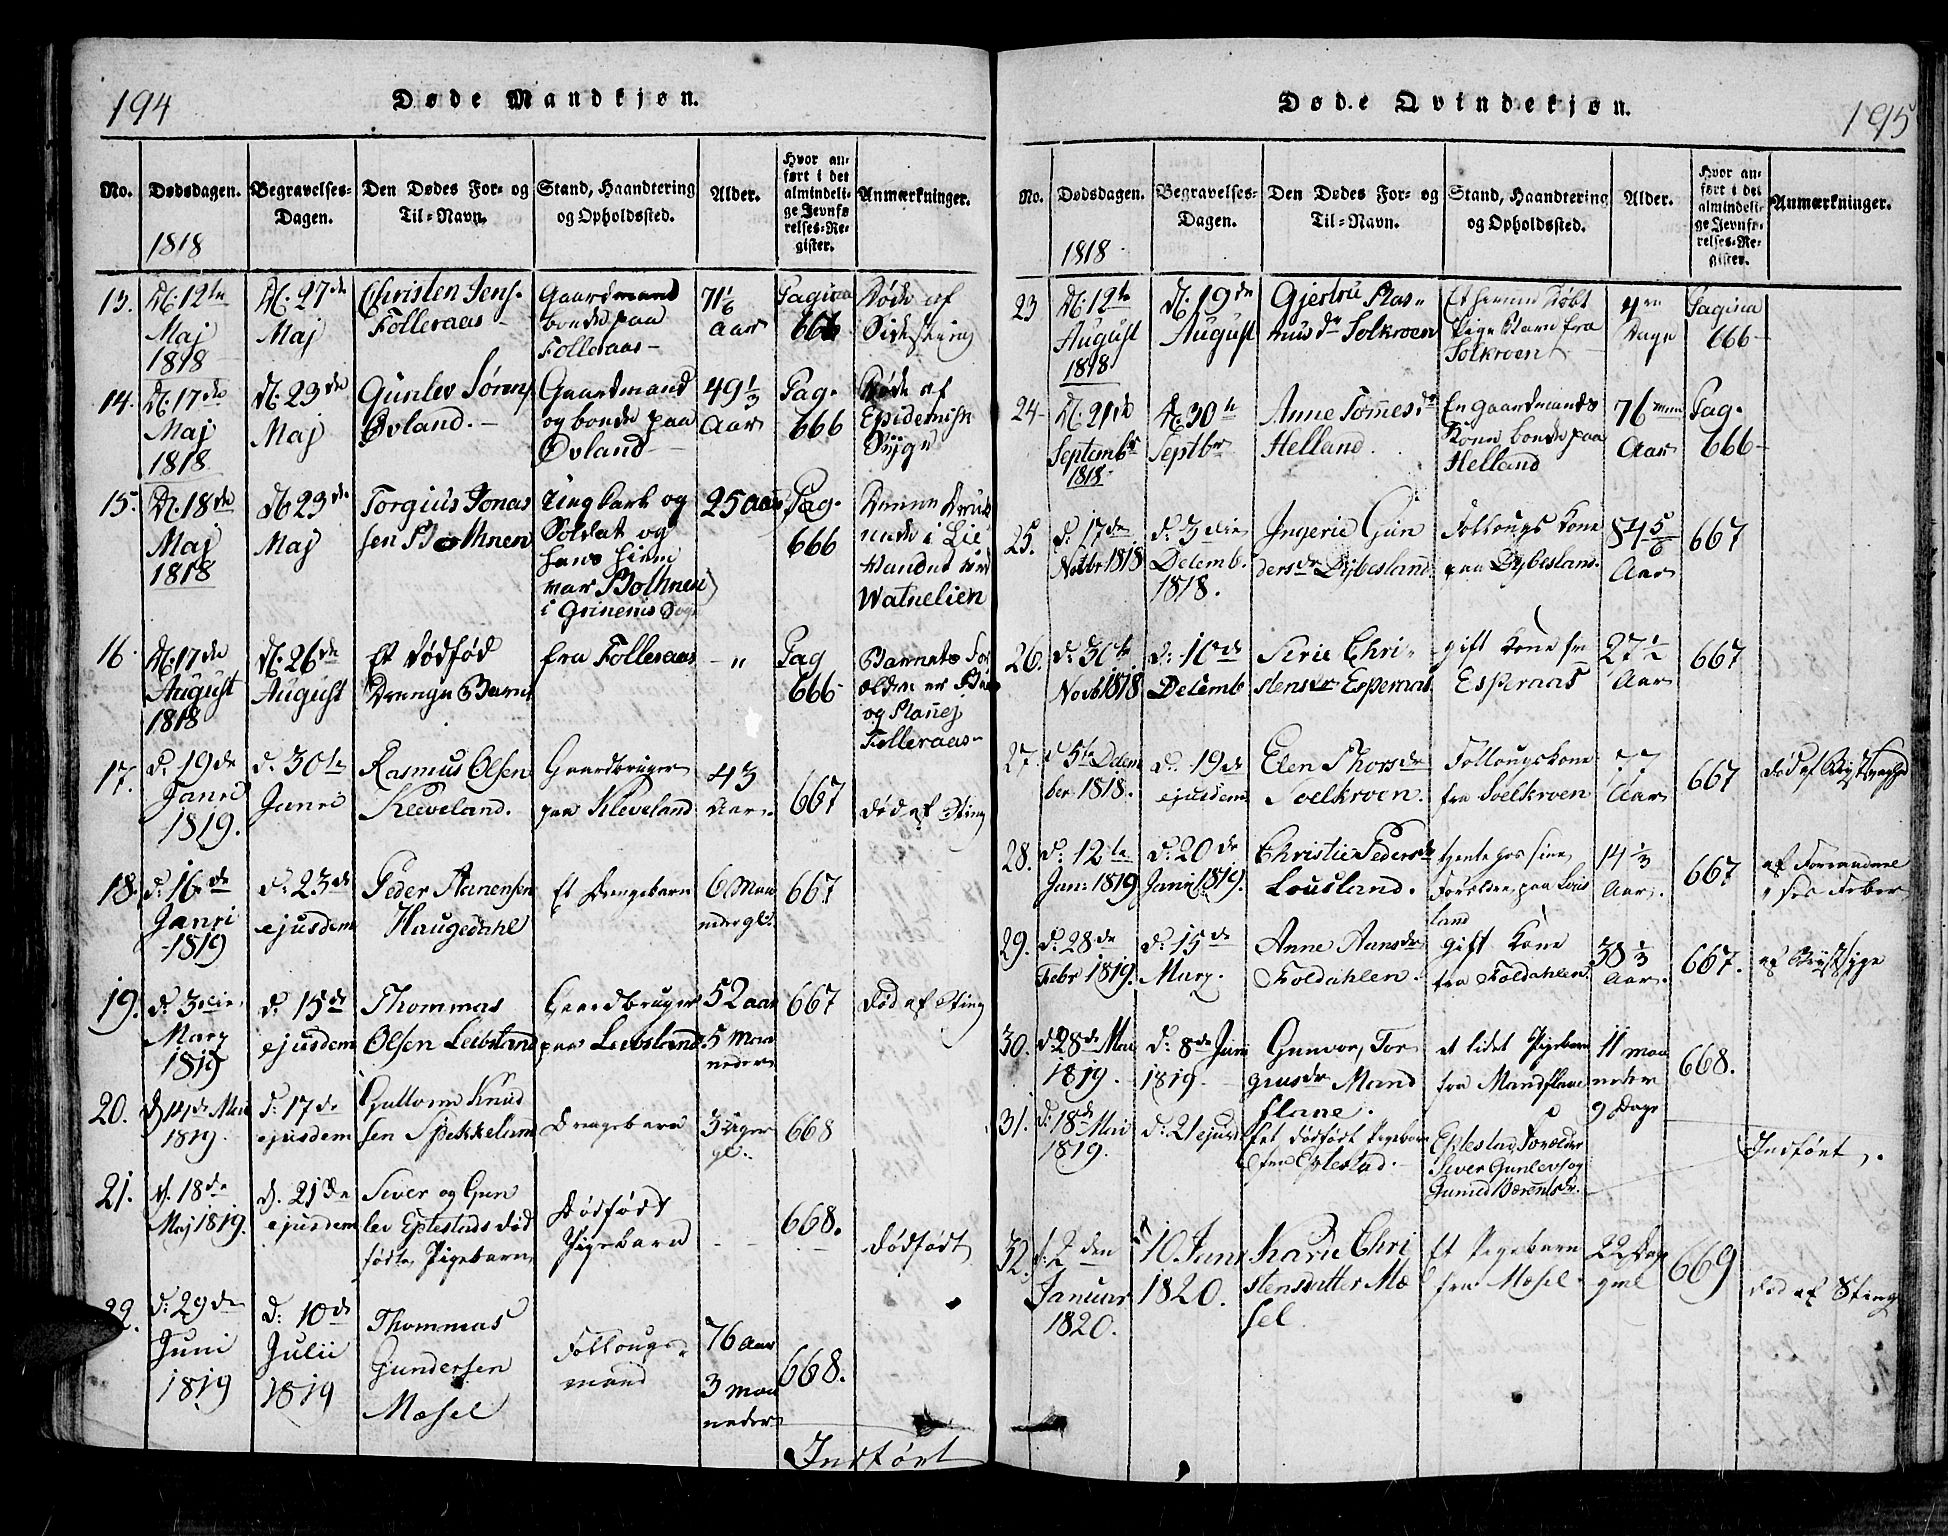 194
Døde Mandkjøn.
No.
Dødsdagen.
Begravelses-
Dagen.
Den Dødes For- og
Til-Navn.
Stand, Haandtering
og Opholdssted.
Alder.
Hvor an-
ført i det
almindeli-
ge Jevnfø-
relses-Re-
gister.
Anmærkninger.
1818
13.
D. 12te
Maj
1818
D. 27de
Maj
Christen Jens.
Folleraas
Gaardmand
boende paa
Folleraas
71 1/6
Aar
Pagina
666
Døde af
Sidesting
14.
D. 17de
Maj
1818
D. 23de
Maj
Gunlev Sørens
Øvland.
Gaardmand
og boende paa
Øvland
49 1/3
Aar
Pag.
666
Døde af
Epidemisk
Syge
15.
D. 18de
Maj
1818
D. 23de
Maj
Torgius Jonas
sen Bothnen
Ung Karl og
Soldat og
hans Hiem
var Bothnen
i Grinems Sogn
25 Aar
Pag.
666
Denne Druk
nede i Lie
Vandet ved
Watnelien
16
D. 17de
August
1818
D. 26de
August
Et dødfød
Drenge Barn
fra Folleraas
"
Pag
666
Barnets For
ældre er
og
Folleraas
17.
D. 19de
Janri
1819.
D. 30te
Janri
Rasmus Olsen
Kleveland.
Gaardbruger
paa Kleveland
43
Aar.
667
Død af Sting
18.
D. 16de
Janri
1819
D. 23de
ejusdem
Peder Aanensen
Haugedahl
Et Drengebarn
6 Maa
neder gl.
667
19.
D. 3die
Marz
1819
D. 15de
ejusdem
Thommas
Olsen Leibsland
Gaardbruger
paa Leibsland
52 Aar
5 Maa
neder
667
Død af Sting
20.
D. 14de Mai
1819.
D. 17de
ejusdem
Guttorm Knud
sen Spekkeland
Drengebarn
3 Uger
gl.
668
21.
D. 18de
Maj 1819.
D. 21de
ejusdem
Siver og Gun
lev Eptestads død
fødte Pigebarn
Dødfødt
Pigebarn
668.
dødfødt
22.
D. 29de
Juni
1819
D. 10de
Julii
1819
Thommas
Gundersen
Mæsel
Follougs-
mand
76 Aar
3 Maa
neder
668.
Indført
195
Døde Qvindekjøn.
No.
Dødsdagen.
Begravelses-
Dagen.
Den Dødes For- og
Til-Navn.
Stand, Haandtering
og Opholdssted.
Alder.
Hvor an-
ført i det
almindeli-
ge Jevnfø-
relses-Re-
gister.
Anmærkninger.
1818
23
D. 12te
August
1818
D. 19de
August
Gjertru Ras-
musdr Solkroen
Et hiemme døbt
Pige Barn fra
Solkroen
Dage
Pagina
666
24
D. 21de
Septembr
1818
D. 30te
Septbr
Anne Tommesdr
Helland.
En Gaardmands
Kone boende paa
Helland
76
Aar
Pag.
666
25.
D. 17de
Novbr 1818
D. 3die
Decemb.
1818.
Ingerie Gun
dersdr Dybesland.
Follougs Kone
paa Dybesland.
84 5/6
Aar
667
26.
D. 30te
Novb 1818
D. 10de
Decemb
Serie Chri-
stensdr Esperaas
gift Kone fra
Esperaas
27 1/2
Aar
667
27.
D 5te Decem
ber 1818.
D. 19de
ejusdem
Elen Thorsdr
Soelkroen.
Follougskone
fra Soelkroen
77
Aar
667
død af Brystsyge
28.
D. 12te
Jan: 1819
D. 20de
Janri 1819.
Christie Pedersdr
Lousland.
hiemme hos sine
Forældre paa Lous
land
14 1/3
Aar.
667
29.
D. 28de
Febr 1819.
D. 15de
Marz.
Anne Aansdr
Foldahlen.
gift Kone
fra Foldahlen.
38 1/3
Aar.
667.
af Brystsyge
30.
D. 28de Mai
1819.
D. 8de Juni
1819.
Gunvor, Tor
giusdr Mand
flane.
et lidet Pigebarn
fra Mandflane
11 maa
neder
9 Dage
668.
31.
D. 18de Mai
1819.
D. 21 ejusd
Et dødfødt Pigebarn
fra Eptestad.
Eptestad Forældre
Siver Gunlevs og
Gunild Bærentsdr.
Indført.
32.
D. 2den
Januar
1820.
D 10 Janr
1820.
Karie Chri
stensdatter Mæ
sel.
Et Pigebarn
fra Mæsel
22 Dage
gml
669
død af Sting